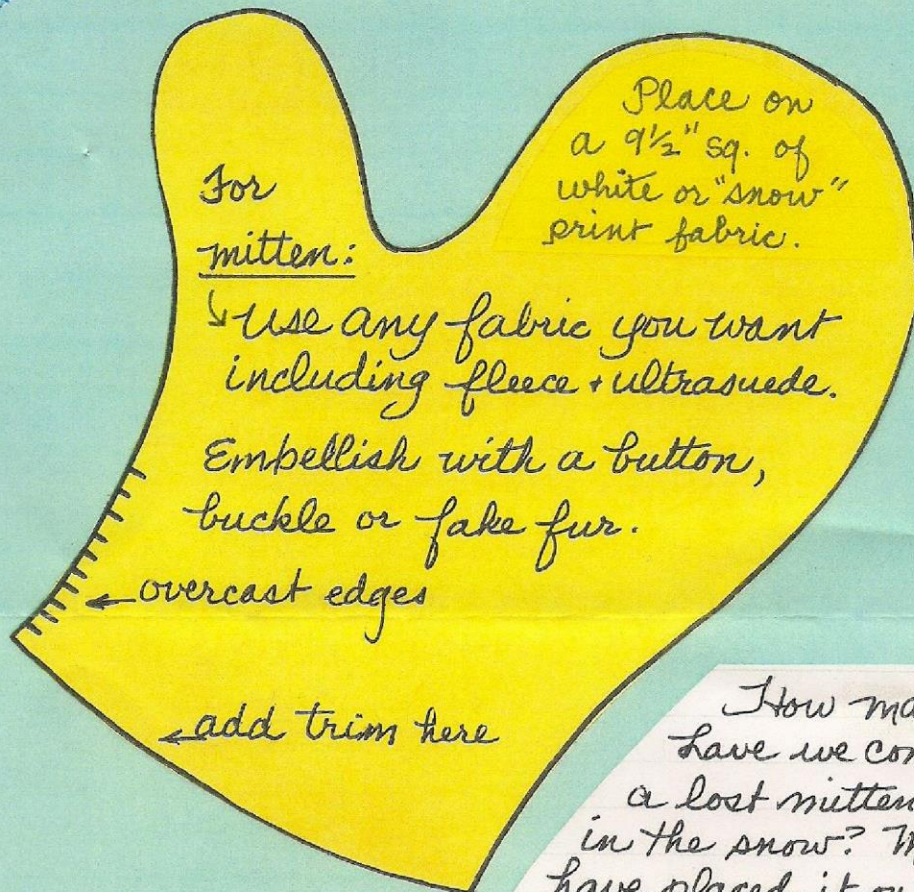 Place on
a 9½" sq. of
white or "snow"
print fabric.
For
mitten:
↳ Use any fabric you want
including fleece + ultrasuede.
Embellish with a button,
buckle or fake fur.
← overcast edges
← add trim here
How
have we
a lost mitten
in the snow?
have placed it